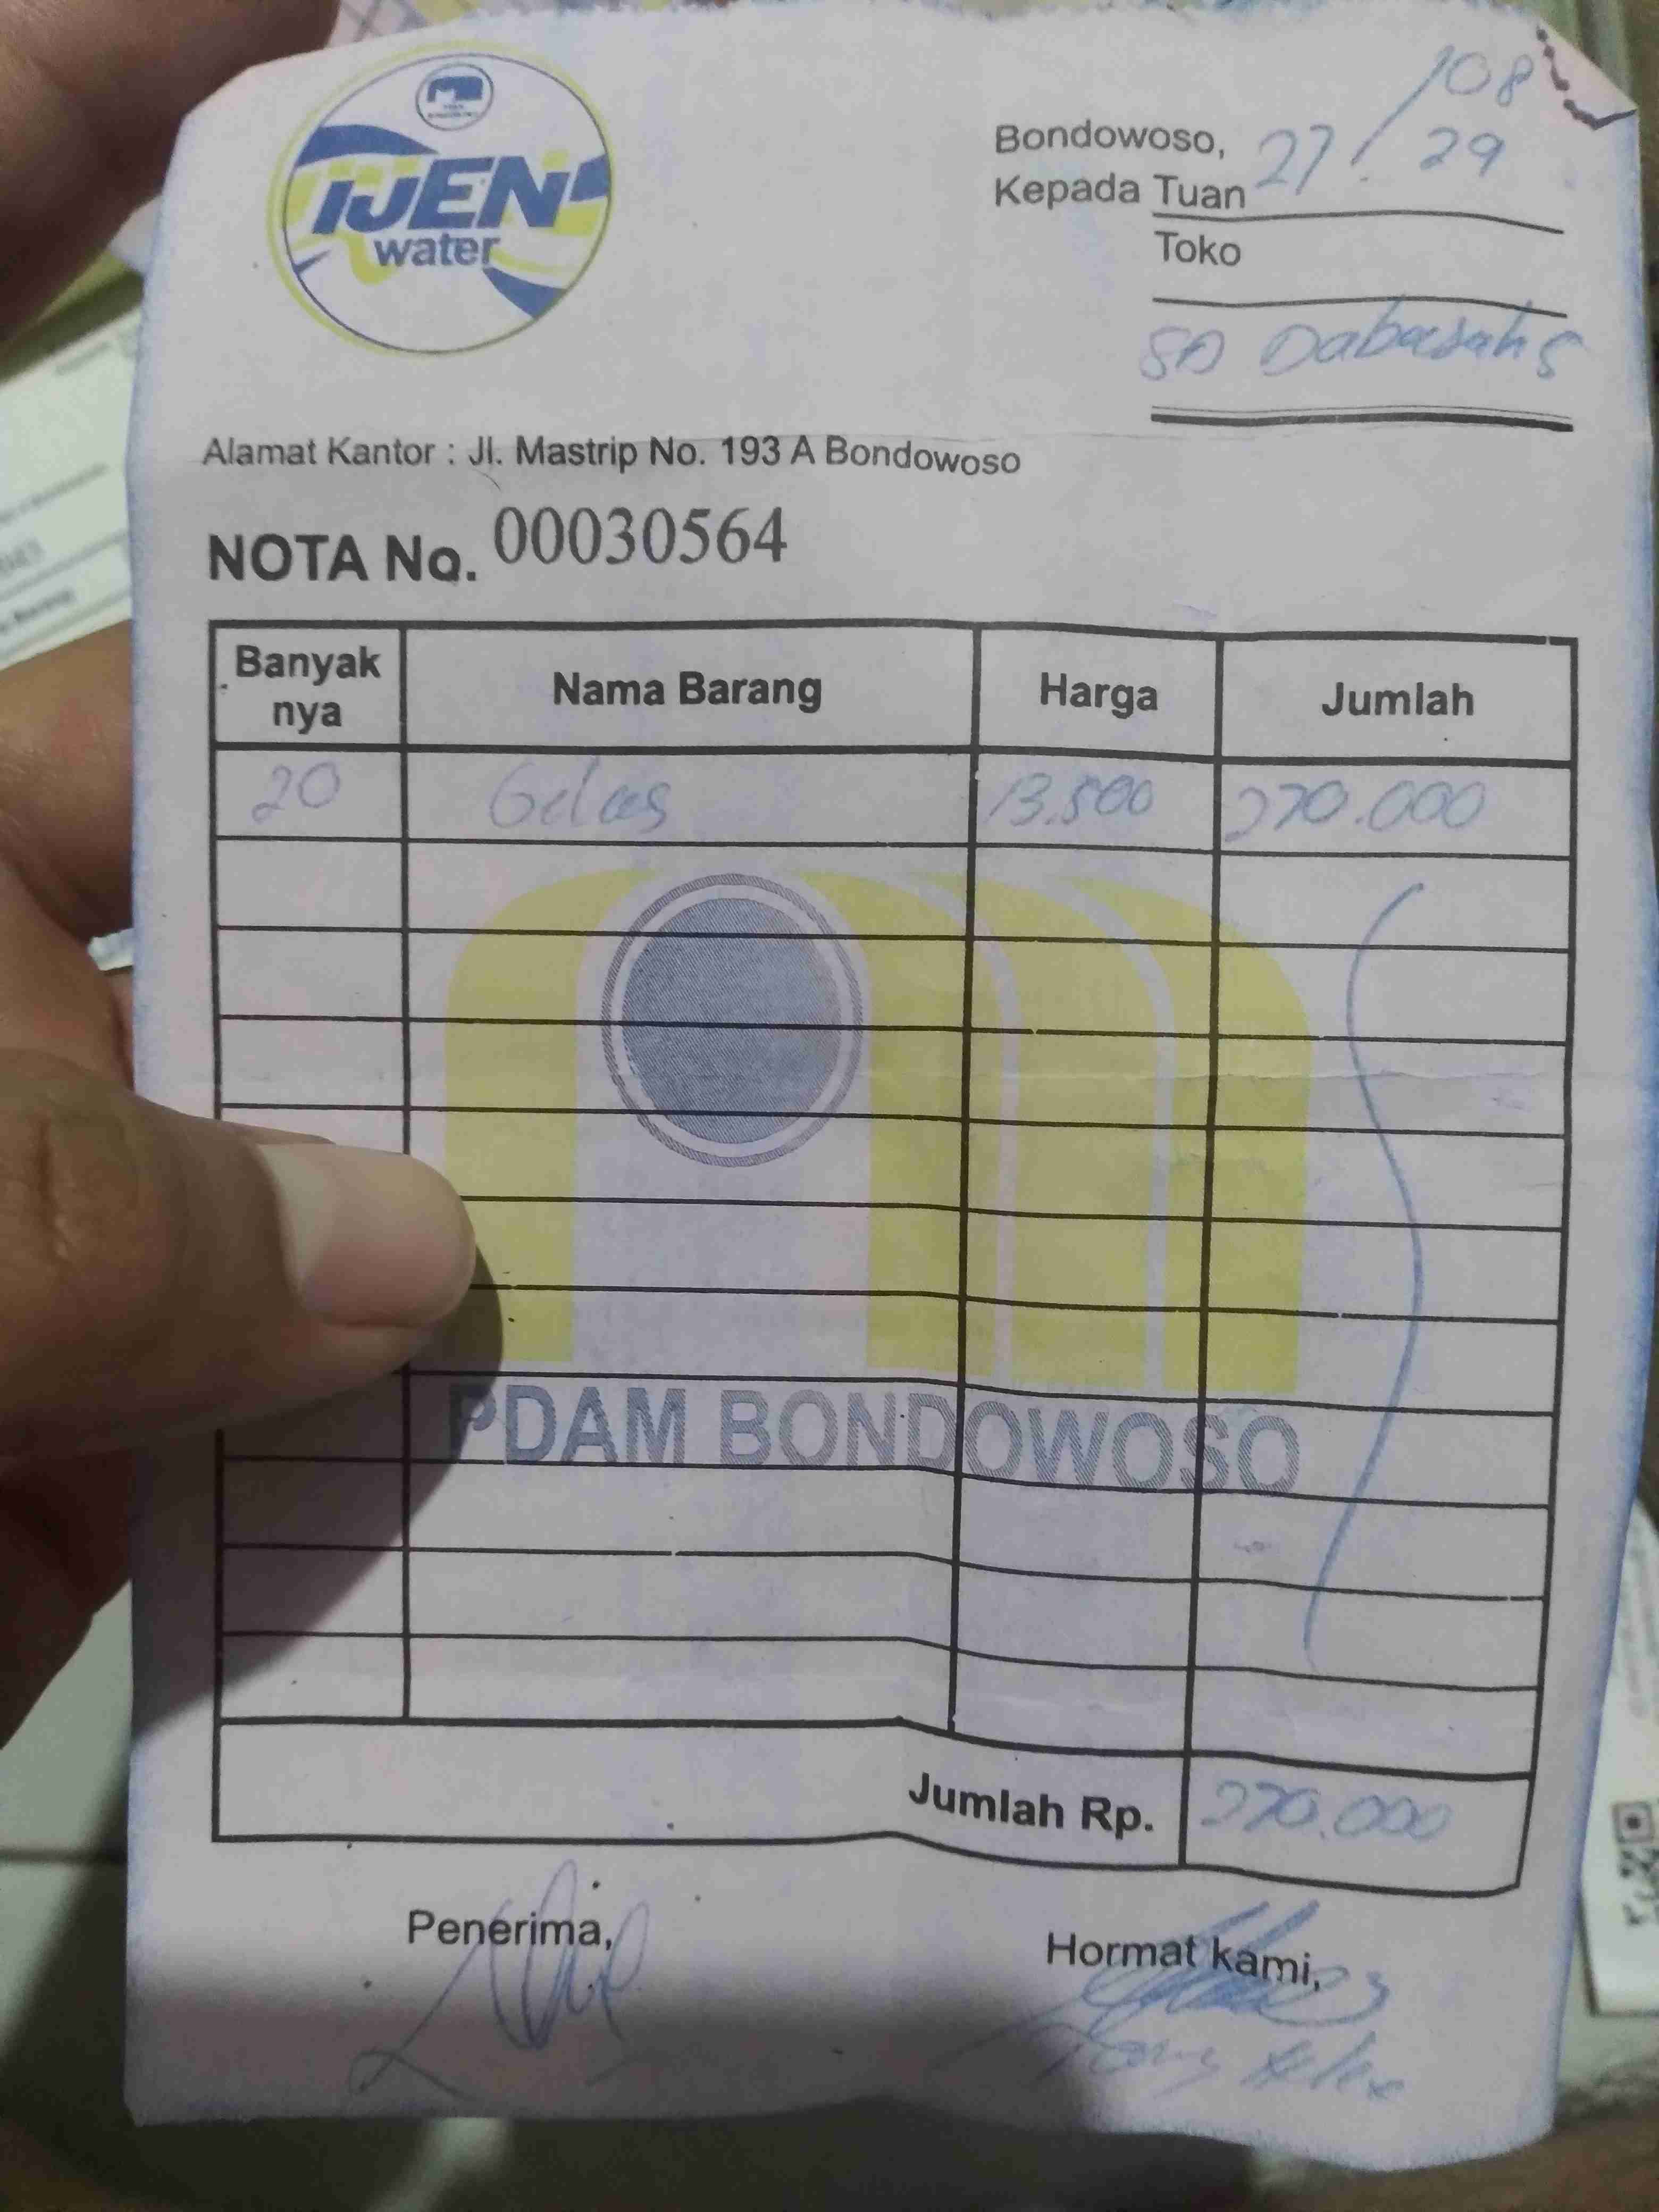 IJEN
water
/08
Bondowoso, 27/ 29
Kepada Tuan
Toko
SD Dabasah 5
Alamat Kantor : Jl. Mastrip No. 193 A Bondowoso
NOTA No. 00030564
Banyak nya Nama Barang Harga Jumlah
20 Gelas 13.500 270.000
PDAM BONDOWOSO
Jumlah Rp. 270.000
Penerima, Hormat kami,